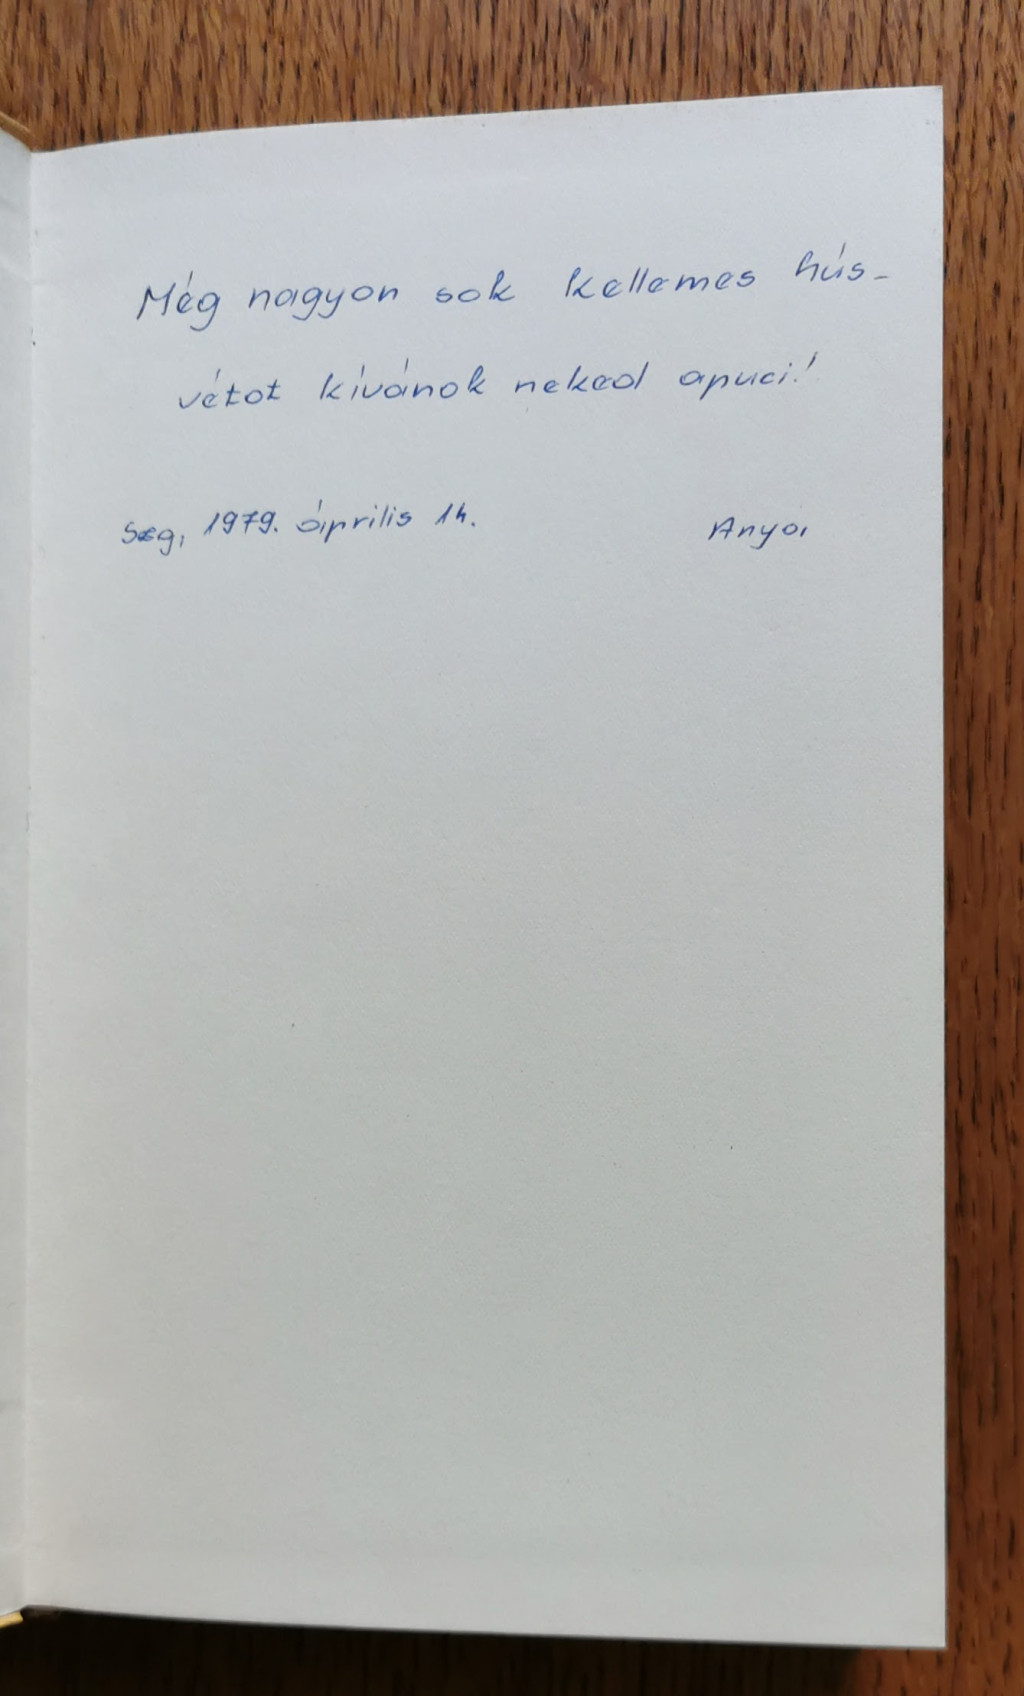 Még nagyon sok kellemes hús-
vétot kívánok neked apuci!
Szg, 1979. április 14.
Anyoi